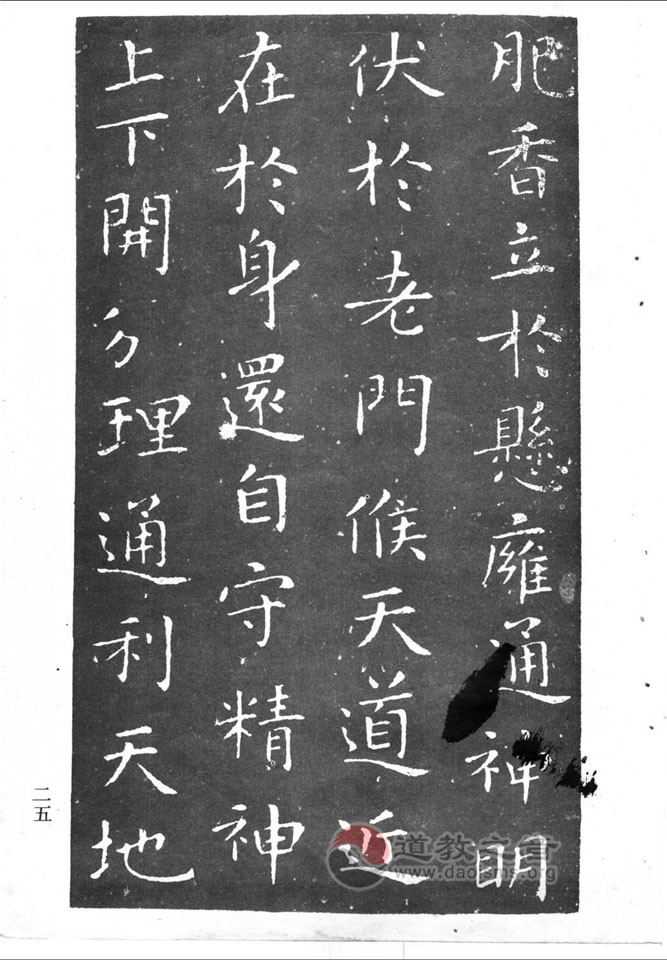 肥香立於懸廱通神明
伏於老門候天道近
在於身還自守精神
上下開分理通利天地
二五
道教文書
www.daoisms.org